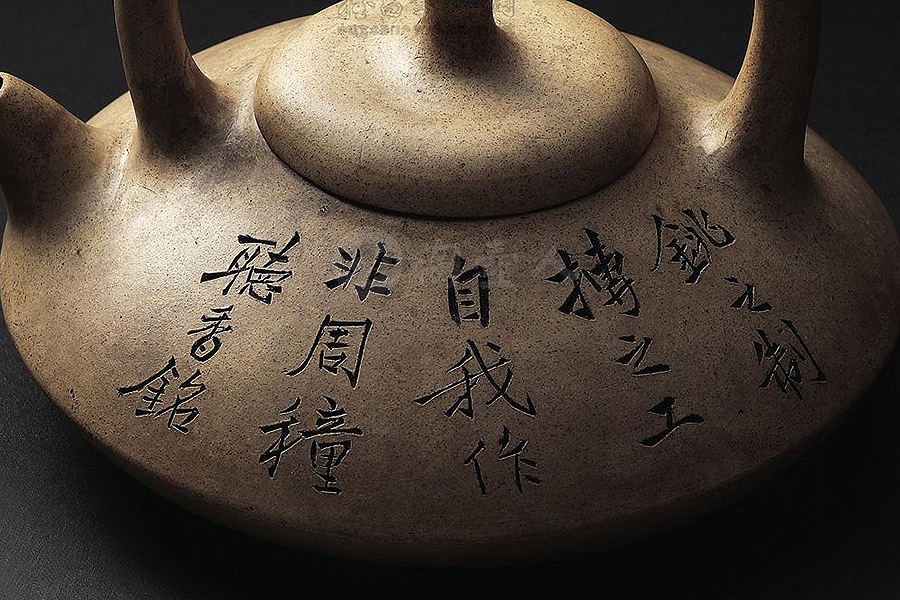 銚之制
摶之工
自我作
非周穜
聴香銘